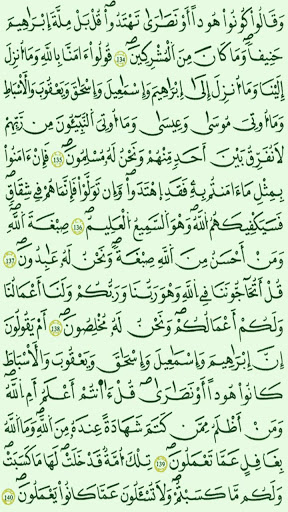 وَقَالُواْ كُونُواْ هُوداً اَوْ نَصَٰرَىٰ تَهْتَدُواْۖ قُلْ بَلْ مِلَّةَ إِبْرَٰهِيمَ
حَنِيفاًۖ وَمَا كَانَ مِنَ ٱلْمُشْرِكِينَۖ 134 قُولُوٓاْ ءَامَنَّا بِاللَّهِ وَمَآ أُنزِلَ
إِلَيْنَا وَمَآ أُنزِلَ إِلَىٰٓ إِبْرَٰهِيمَ وَإِسْمَٰعِيلَ وَإِسْحَٰقَ وَيَعْقُوبَ وَالْأَسْبَاطِ
وَمَآ أُوتِيَ مُوسَىٰ وَعِيسَىٰ وَمَآ أُوتِيَ ٱلنَّبِيٓـُٔونَ مِن رَّبِّهِمْ
لَا نُفَرِّقُ بَيْنَ أَحَدٍ مِّنْهُمْ وَنَحْنُ لَهُۥ مُسْلِمُونَۖ 135 فَإِنْ ءَامَنُواْ
بِمِثْلِ مَآ ءَامَنتُم بِهِۦ فَقَدِ اِهْتَدَواْۖ وَّإِن تَوَلَّوْاْ فَإِنَّمَا هُمْ فِي شِقَاقٖۖ
فَسَيَكْفِيكَهُمُ اللَّهُۖ وَهُوَ ٱلسَّمِيعُ ٱلْعَلِيمُۖ 136 صِبْغَةَ ٱللَّهِۖ
وَمَنْ أَحْسَنُ مِنَ ٱللَّهِ صِبْغَةًۖ وَنَحْنُ لَهُۥ عَٰبِدُونَۖ 137
قُلْ أَتُحَآجُّونَنَا فِي ٱللَّهِ وَهُوَ رَبُّنَا وَرَبُّكُمْ وَلَنَآ أَعْمَٰلُنَا
وَلَكُمْ أَعْمَٰلُكُمْۖ وَنَحْنُ لَهُۥ مُخْلِصُونَۖ 138 أَمْ يَقُولُونَ
إِنَّ إِبْرَٰهِيمَ وَإِسْمَٰعِيلَ وَإِسْحَٰقَ وَيَعْقُوبَ وَالْأَسْبَاطَ
كَانُواْ هُوداً اَوْ نَصَٰرَىٰۖ قُلْ ءَآنتُمْ أَعْلَمُ أَمِ اِللَّهُۖ
وَمَنْ أَظْلَمُ مِمَّن كَتَمَ شَهَٰدَةً عِندَهُۥ مِنَ ٱللَّهِۖ وَمَا ٱللَّهُ
بِغَٰفِلٍ عَمَّا تَعْمَلُونَۖ 139 تِلْكَ أُمَّةٌ قَدْ خَلَتْۖ لَهَا مَا كَسَبَتْ
وَلَكُم مَّا كَسَبْتُمْۖ وَلَا تُسْـَٔلُونَ عَمَّا كَانُواْ يَعْمَلُونَۖ 140